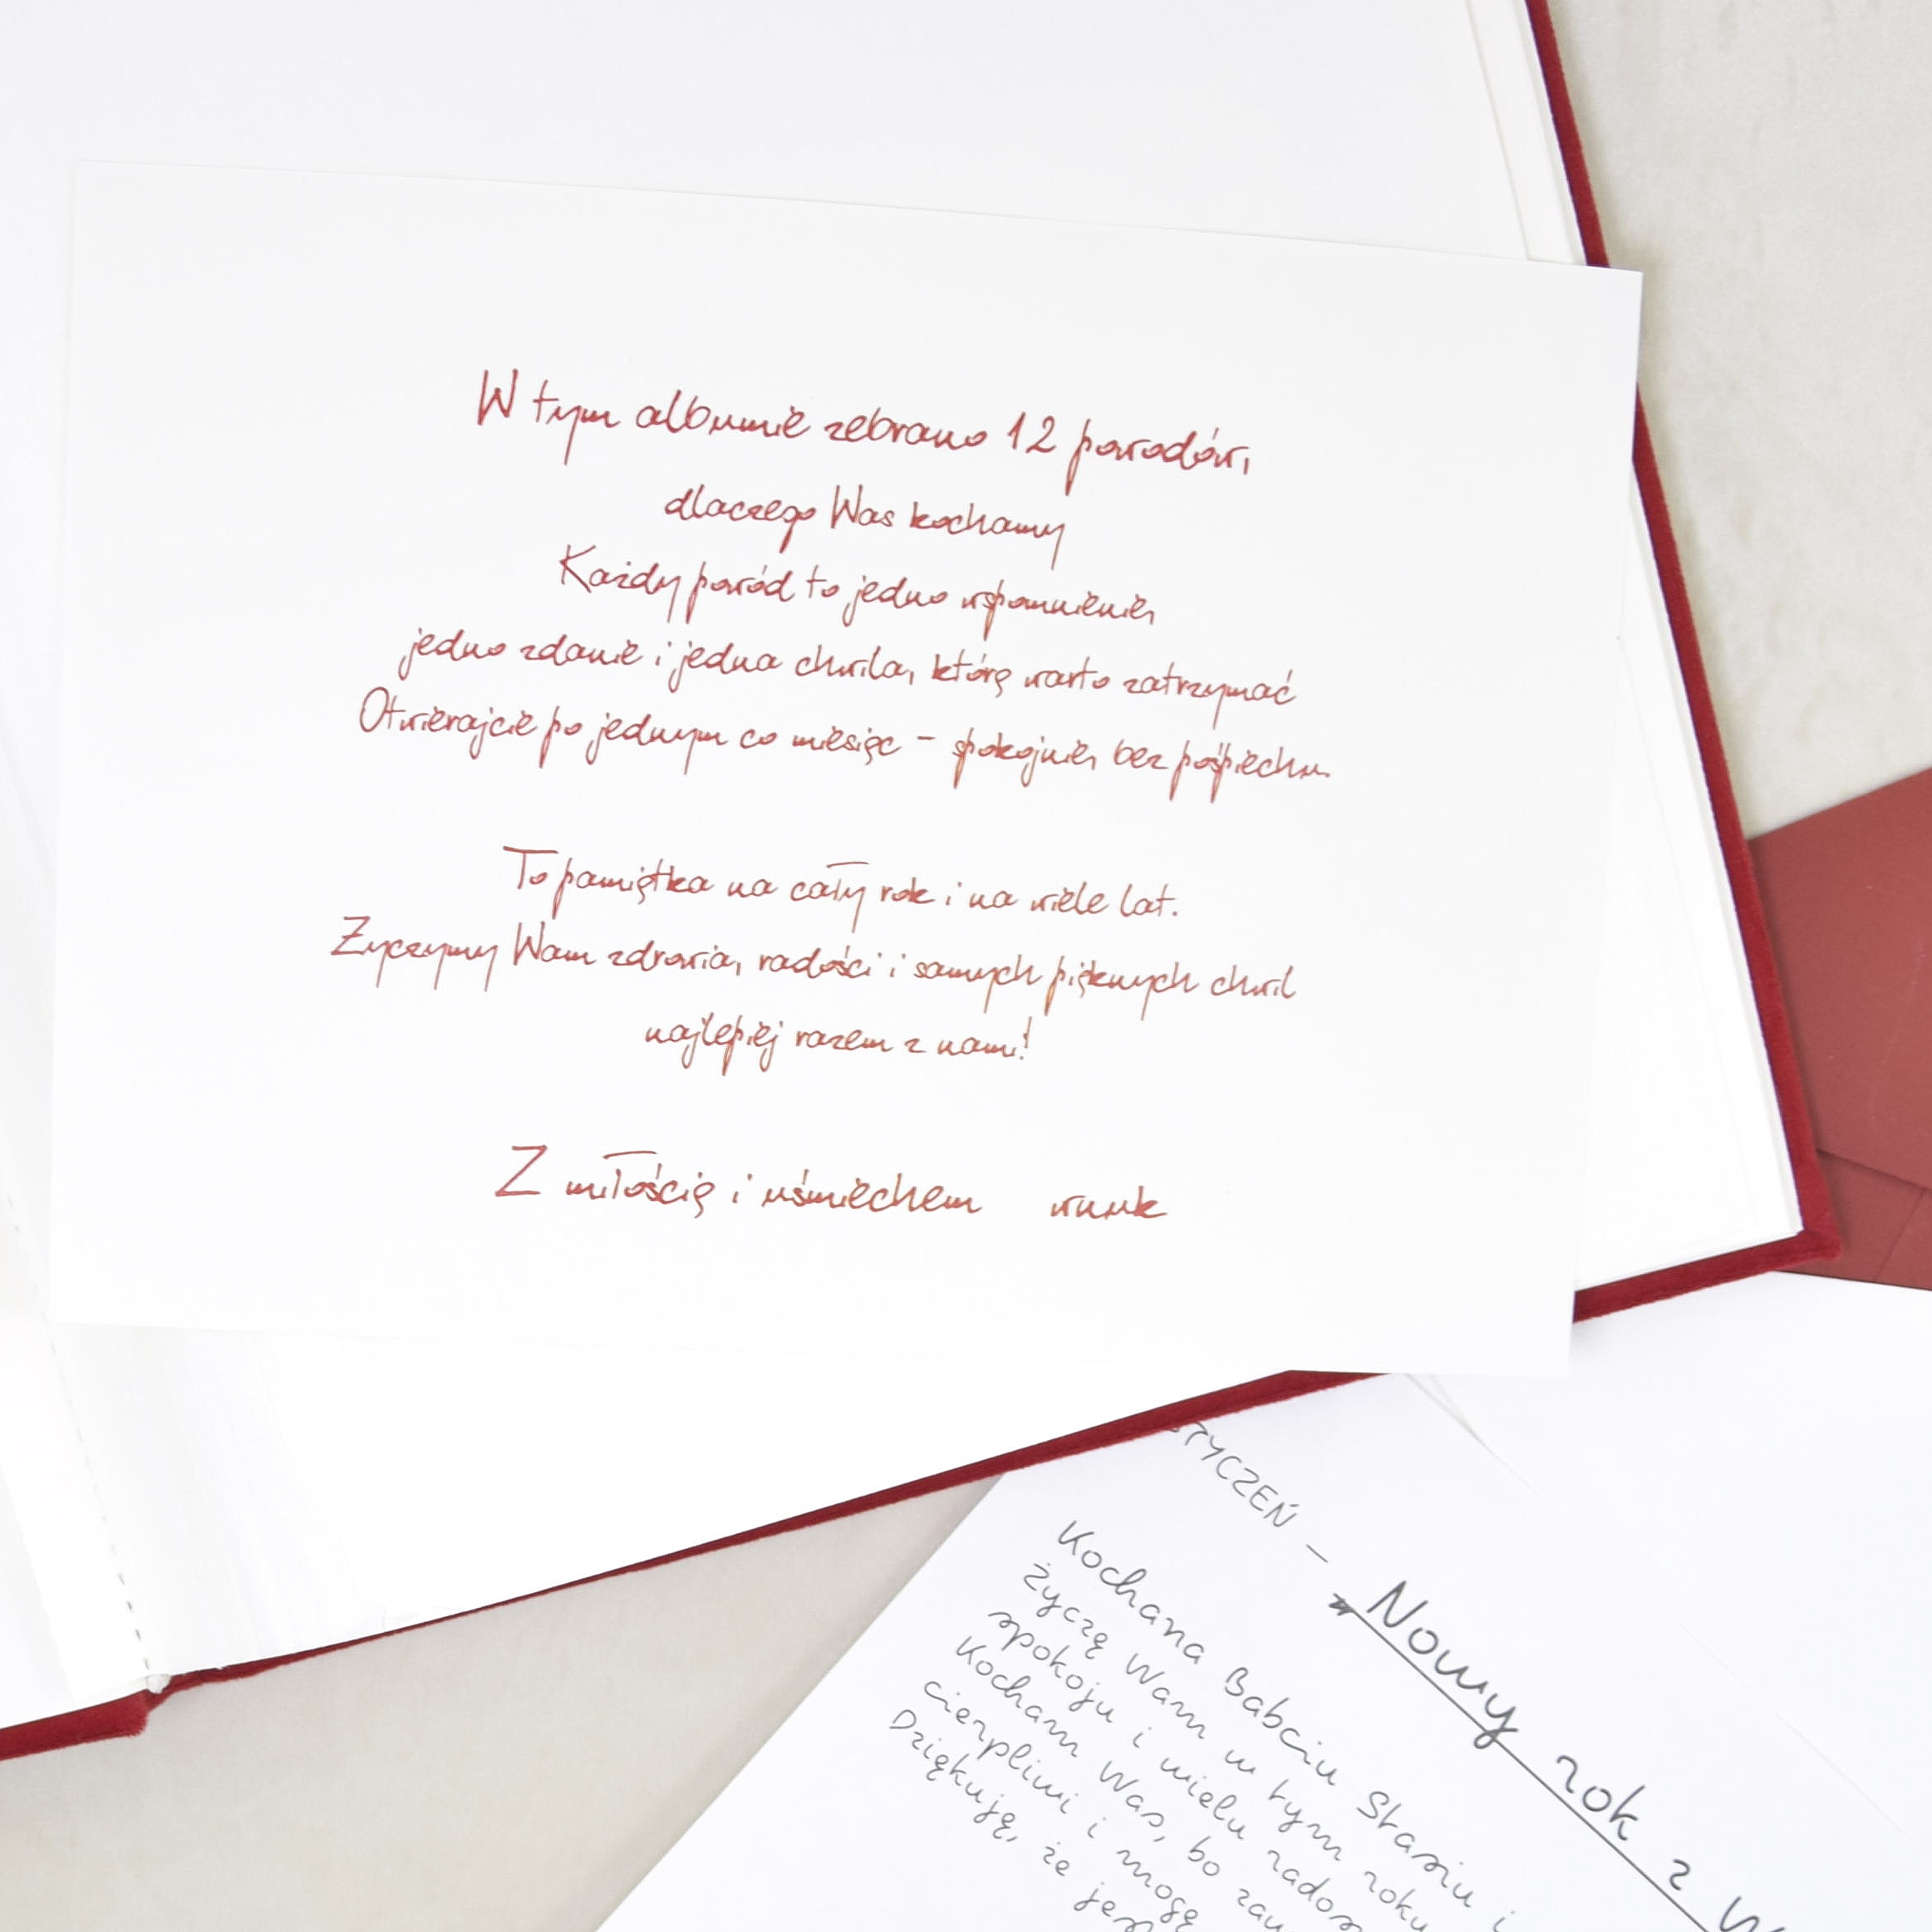 W tym albumie zebrano 12 powodów,
dlaczego Was kochamy
Każdy powód to jedno wspomnienie,
jedno zdanie i jedna chwila, którą warto zatrzymać
Otwierajcie po jednym co miesiąc – spokojnie, bez pośpiechu.
To pamiątka na cały rok i na wiele lat.
Życzymy Wam zdrowia, radości i samych pięknych chwil
najlepiej razem z nami!
Z miłością i uśmiechem wnuk
STYCZEŃ –
Nowy rok z W
Kochana Babciu Stasiu i
Życzę Wam w tym roku
spokoju i wielu rados
Kocham Was, bo zaw
cierpliwi i mogę
Dziękuję, że jes